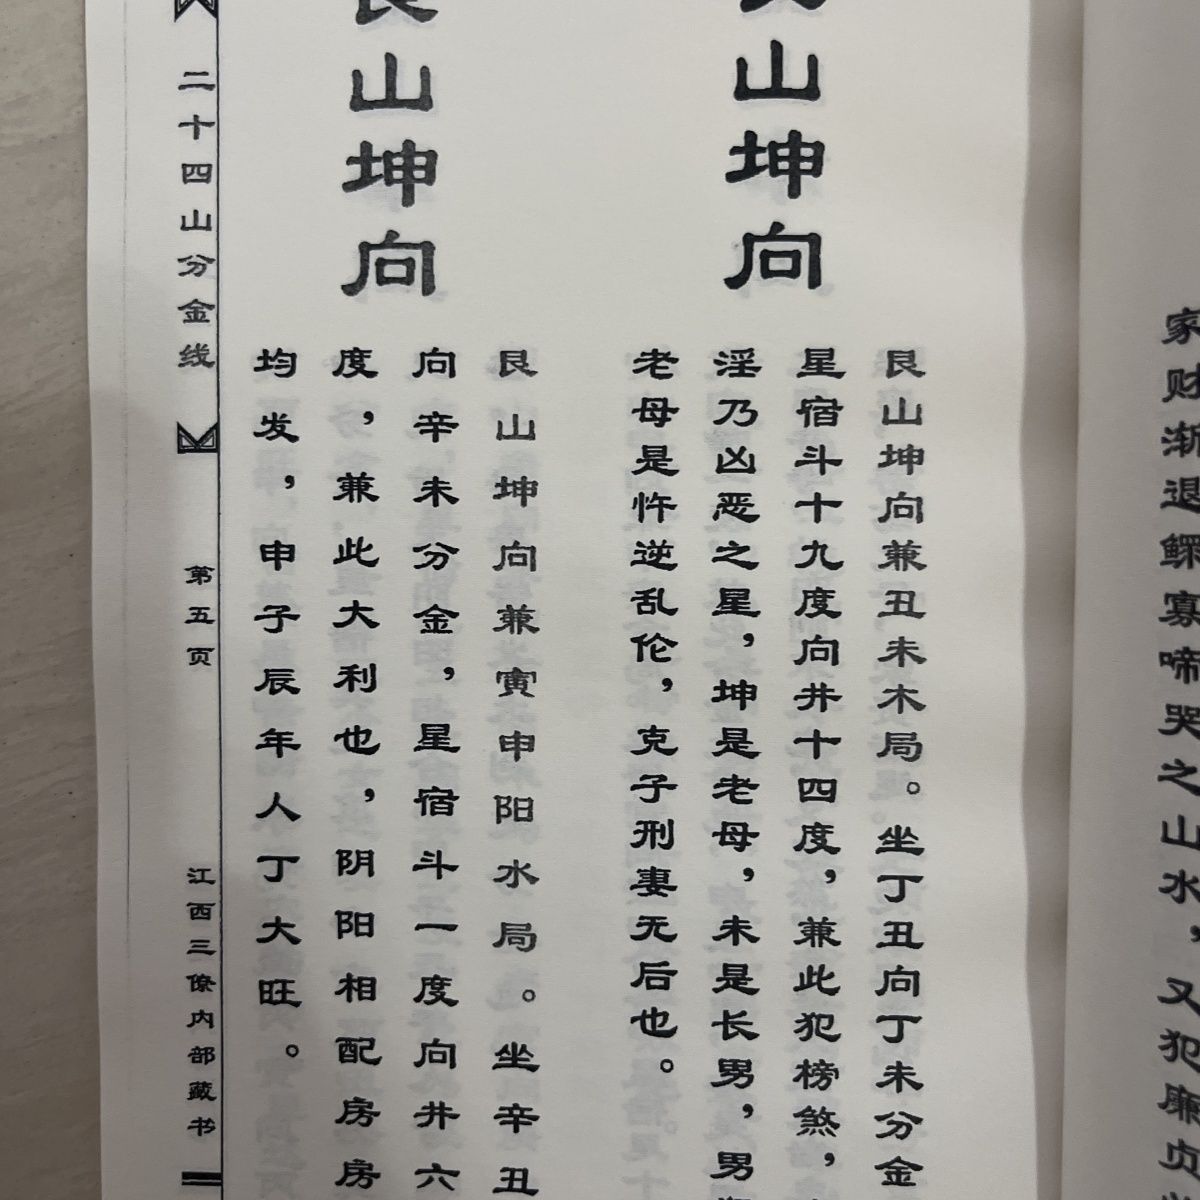 家财渐退鳏寡啼哭之山水，又犯廉贞
山坤向
艮山坤向兼丑未木局。坐丁丑向丁未分金
星宿斗十九度向井十四度，兼此犯榜煞，
淫乃凶恶之星，坤是老母，未是长男，男
老母是忤逆乱伦，克子刑妻无后也。
艮山坤向
艮山坤向兼寅申阳水局。坐辛丑
向辛未分金，星宿斗一度向井六
度，兼此大利也，阴阳相配房房
均发，申子辰年人丁大旺。
二十四山分金线
第五页
江西三僚内部藏书